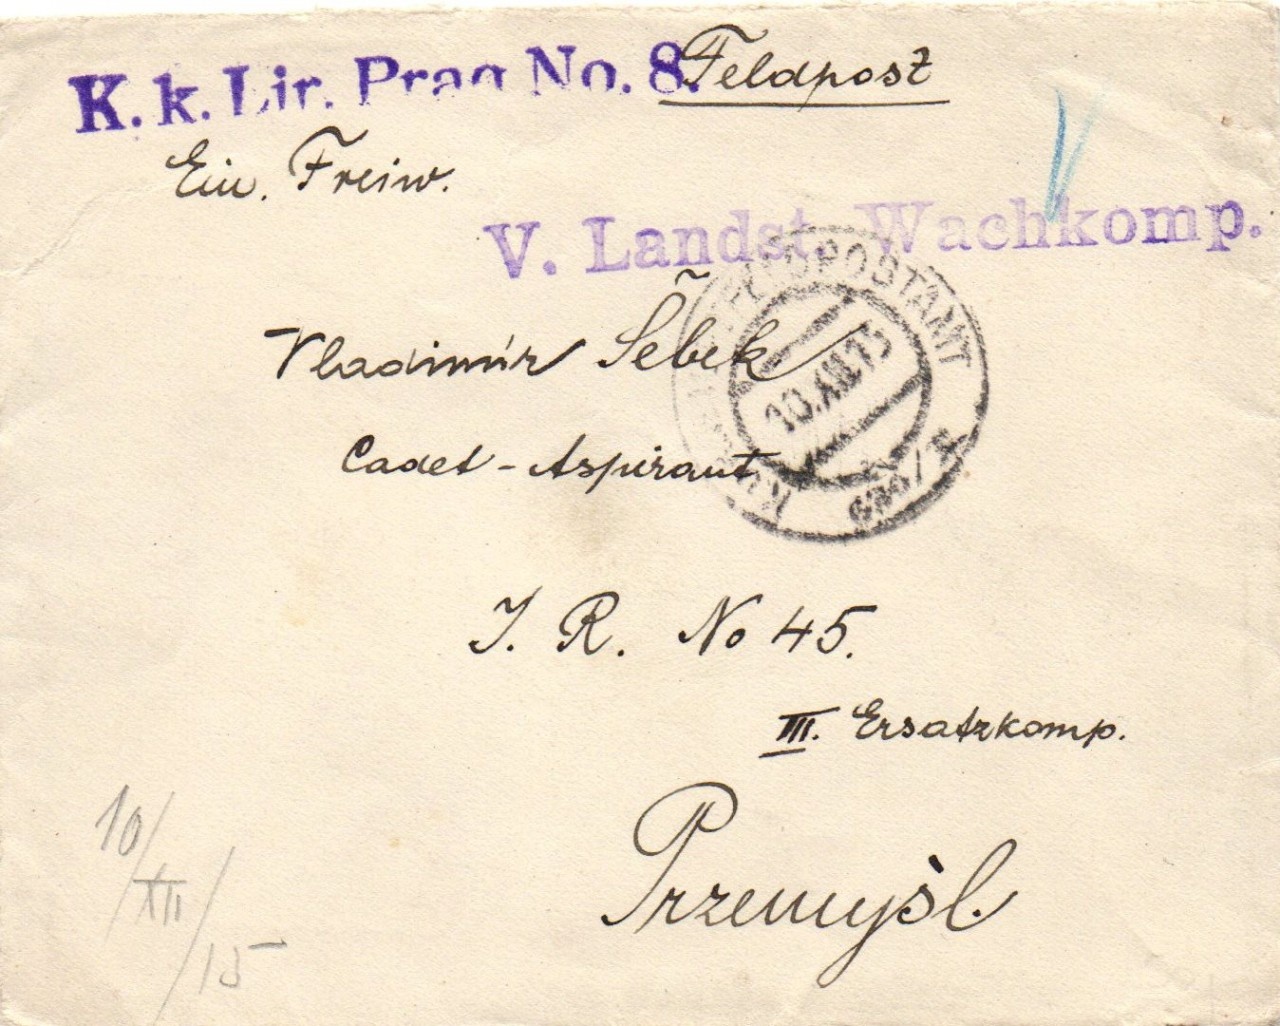 K. k. Lir. Prag No. 8. Feldpost
Ein. Freiw.
V. Landst. Wachkomp.
Vladimír Šebek
Cadet - Aspirant
FELDPOSTAMT
10.XII.15
I. R. No 45.
III. Ersatzkomp.
Przemyśl.
10/XII/15